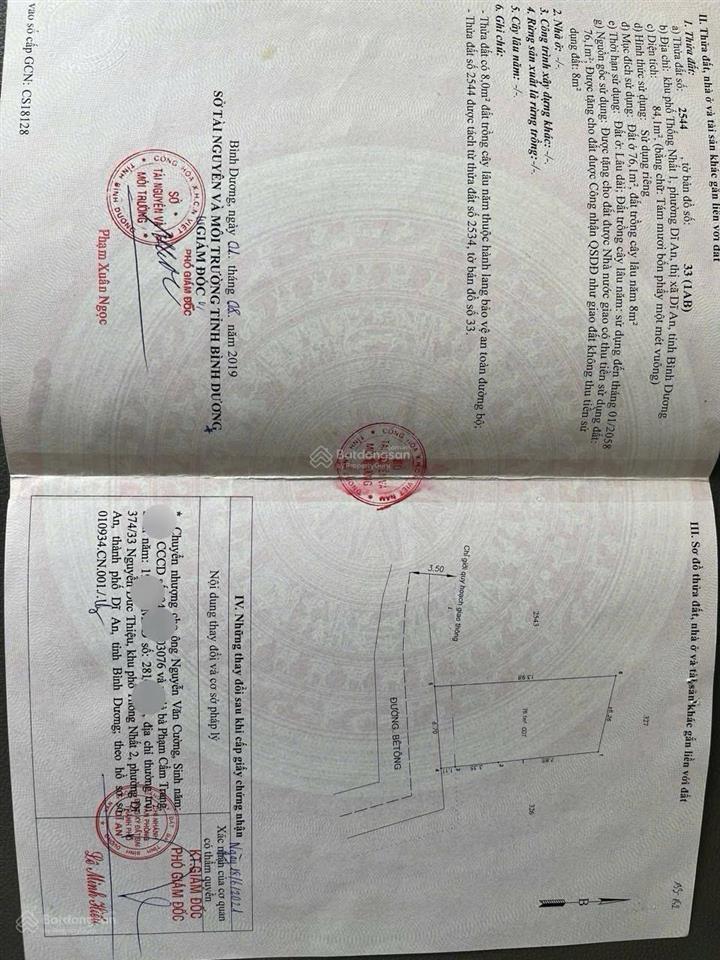 II. Thửa đất, nhà ở và tài sản khác gắn liền với đất
1. Thửa đất:
a) Thửa đất số: 2544 , tờ bản đồ số: 33 (1AB)
b) Địa chỉ: khu phố Thống Nhất 1, phường Dĩ An, thị xã Dĩ An, tỉnh Bình Dương
c) Diện tích: 84,1m², (bằng chữ: Tám mươi bốn phẩy một mét vuông)
d) Hình thức sử dụng: Sử dụng riêng
đ) Mục đích sử dụng: Đất ở 76,1m², đất trồng cây lâu năm 8m²
e) Thời hạn sử dụng: Đất ở: Lâu dài; Đất trồng cây lâu năm: sử dụng đến tháng 01/2058
g) Nguồn gốc sử dụng: Được tặng cho đất được Nhà nước giao có thu tiền sử dụng đất:
76,1m²; Được tặng cho đất được Công nhận QSDĐ như giao đất không thu tiền sử
dụng đất: 8m²
2. Nhà ở: -/-.
3. Công trình xây dựng khác: -/-.
4. Rừng sản xuất là rừng trồng: -/-.
5. Cây lâu năm: -/-.
6. Ghi chú:
- Thửa đất có 8,0m² đất trồng cây lâu năm thuộc hành lang bảo vệ an toàn đường bộ;
- Thửa đất số 2544 được tách từ thửa đất số 2534, tờ bản đồ số 33.
Bình Dương, ngày 01 tháng 08 năm 2019
SỞ TÀI NGUYÊN VÀ MÔI TRƯỜNG TỈNH BÌNH DƯƠNG
GIÁM ĐỐC
PHÓ GIÁM ĐỐC
CỘNG HÒA X.H.C.N VIỆT
SỞ
TÀI NGUYÊN VÀ
MÔI TRƯỜNG
TỈNH BÌNH DƯƠNG
Phạm Xuân Ngọc
vào sổ cấp GCN: CS18128
Batdongsan
by PropertyGuru
III. Sơ đồ thửa đất, nhà ở và tài sản khác gắn liền với đất
B
327
2543
326
13.98
6.70
3.50
Chỉ giới quy hoạch giao thông
ĐƯỜNG BÊTÔNG
IV. Những thay đổi sau khi cấp giấy chứng nhận
Nội dung thay đổi và cơ sở pháp lý
Xác nhận của cơ quan
có thẩm quyền
Ngày 15/6/2021
* Chuyển nhượng cho ông Nguyễn Văn Cường, Sinh năm
CCCD 03076 và bà Phạm Cẩm Trang
năm: 1 số: 281 , địa chỉ thường trú
374/33 Nguyễn Đức Thiệu, khu phố Thống Nhất 2, phường Dĩ
An, thành phố Dĩ An, tỉnh Bình Dương; theo hồ sơ số
010934.CN.001./.
KT.GIÁM ĐỐC
PHÓ GIÁM ĐỐC
DĨ AN
Lê Minh Hiếu
Batdongsan